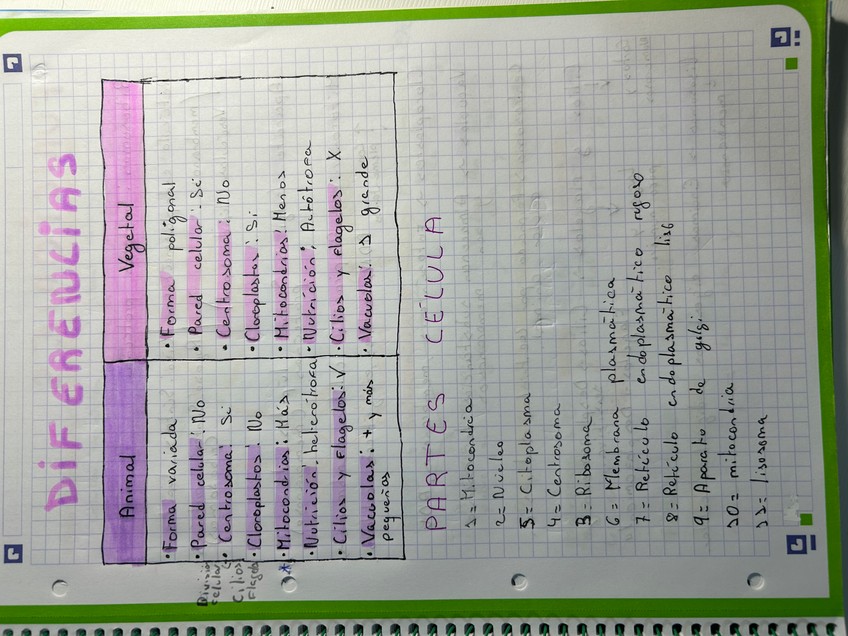 DIFERENCIAS
Animal
• Forma variada
• Pared celular: No
• Centrosoma: Si
• Cloroplastos: No
• Mitocondrias: Más
• Nutrición: heterótrofa
• Cilios y Flagelos: V
• Vacuolas: + y más
pequeños
División
celular
Cilios
Flagelo
Vegetal
• Forma poligonal
• Pared celular: Si
• Centrosoma: No
• Cloroplastos: Si
• Mitocondrias: Menos
• Nutrición: Autótrofa
• Cilios y Flagelos: X
• Vacuolas: 1 grande
PARTES CÉLULA
1= Mitocondria
2= Núcleo
3= Citoplasma
4= Centrosoma
5= Ribosoma
6= Membrana plasmática
7= Retículo endoplasmático rugoso
8= Retículo endoplasmático liso
9= Aparato de golgi
10= mitocondria
11= lisosoma